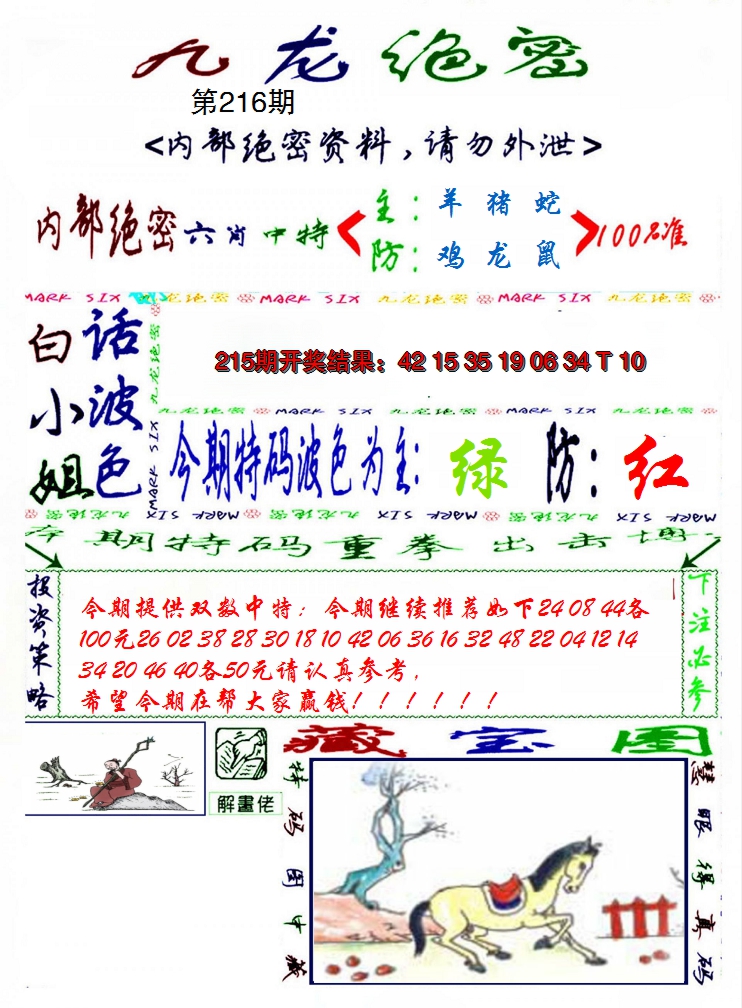 九龙绝密
第216期
<内部绝密资料,请勿外泄>
内部绝密六肖中特
主:羊 猪 蛇
防:鸡 龙 鼠
100%准
MARK SIX 九龙绝密 MARK SIX 九龙绝密 MARK SIX 九龙绝密
白小姐
话波色
九龙绝密
MARK SIX
215期开奖结果:42 15 35 19 06 34 T 10
九龙绝密 MARK SIX 九龙绝密 MARK SIX 九龙绝密
今期特码波色为主:绿 防:红
MARK SIX 九龙绝密 MARK SIX 九龙绝密 MARK SIX 九龙绝密 MARK SIX
本期特码重拳出击博
投资策略
今期提供双数中特:今期继续推荐如下24 08 44各
100元26 02 38 28 30 18 10 42 06 36 16 32 48 22 04 12 14
34 20 46 40各50元请认真参考,
希望今期在帮大家赢钱!!!!!!
下注必参
藏宝图
解畫佬
特码图中藏
慧眼得真码